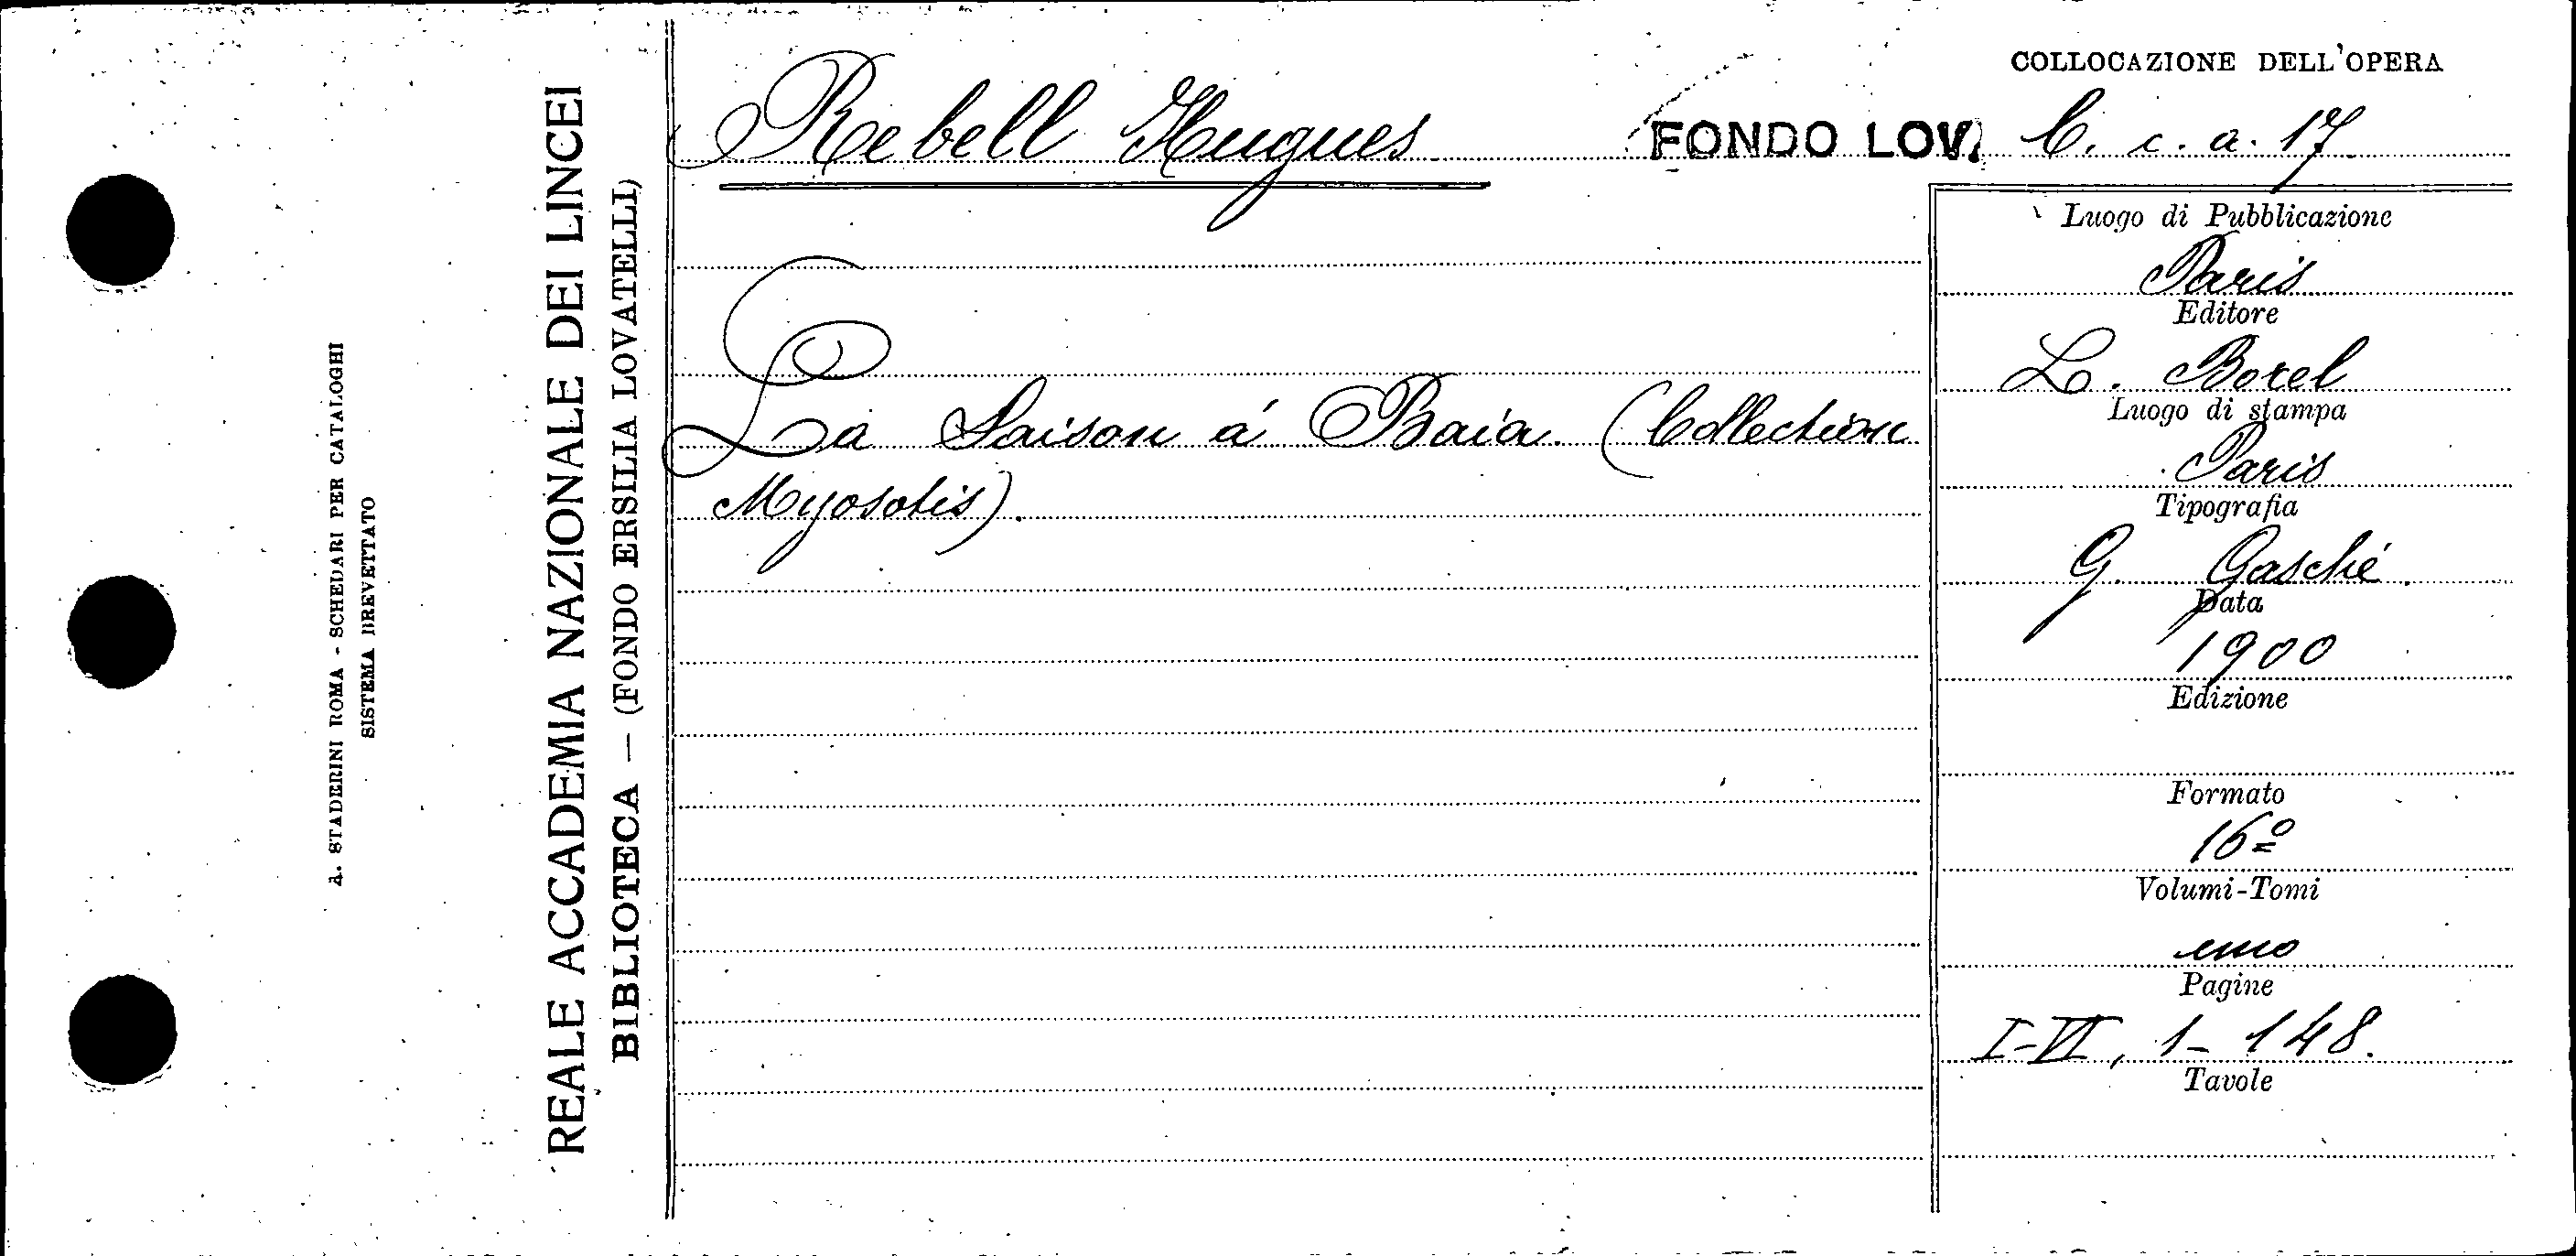 A. STADERINI ROMA - SCHEDARI PER CATALOGHI
SISTEMA BREVETTATO
REALE ACCADEMIA NAZIONALE DEI LINCEI
BIBLIOTECA — (FONDO ERSILIA LOVATELLI)
COLLOCAZIONE DELL'OPERA
Rebell Hugues
FONDO LOV. C. c. a. 17
La Saison á Baia. (Collection
Myosotis).
Luogo di Pubblicazione
Paris
Editore
L. Borel
Luogo di stampa
Paris
Tipografia
G. Gasché.
Data
1900
Edizione
Formato
16º
Volumi-Tomi
uno
Pagine
I-VI, 1-148.
Tavole